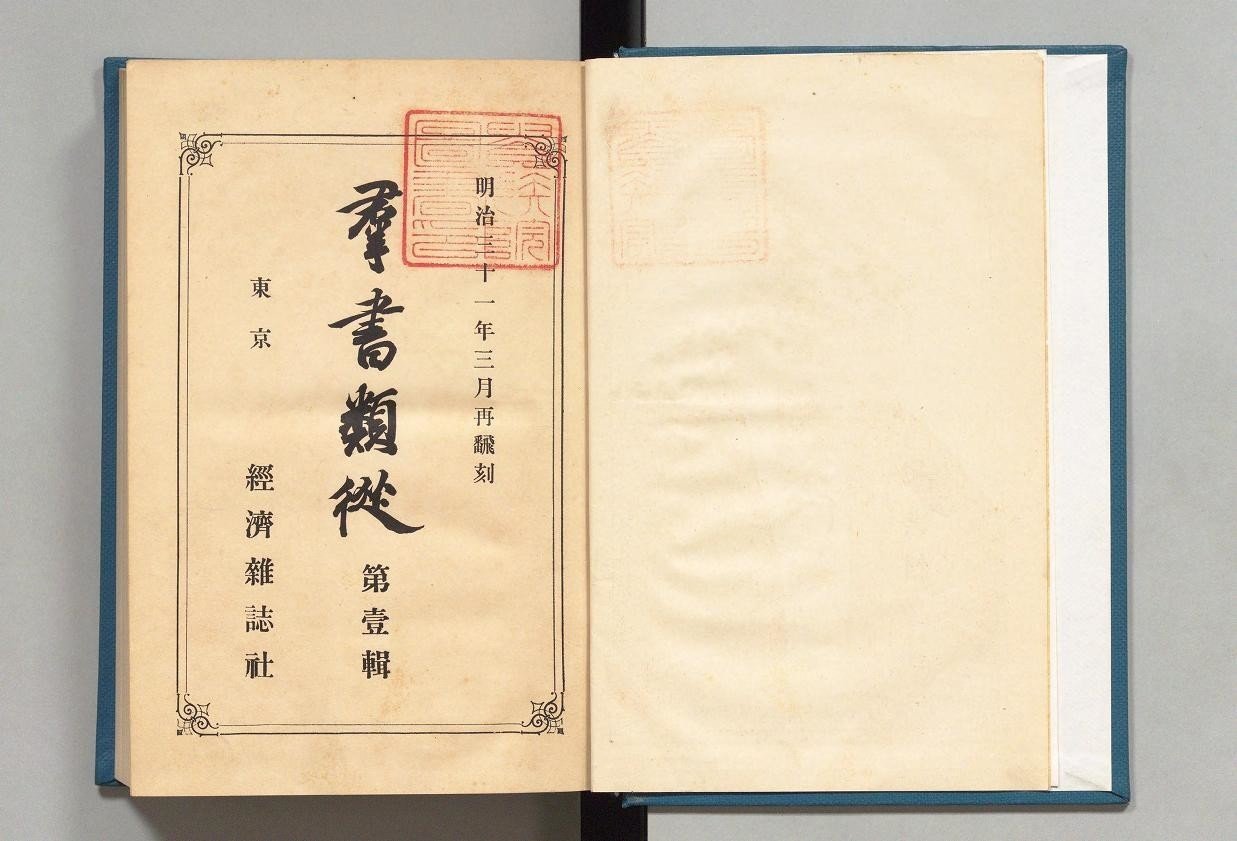 明治三十一年三月再飜刻
羣書類從 第壹輯
東京 經濟雜誌社